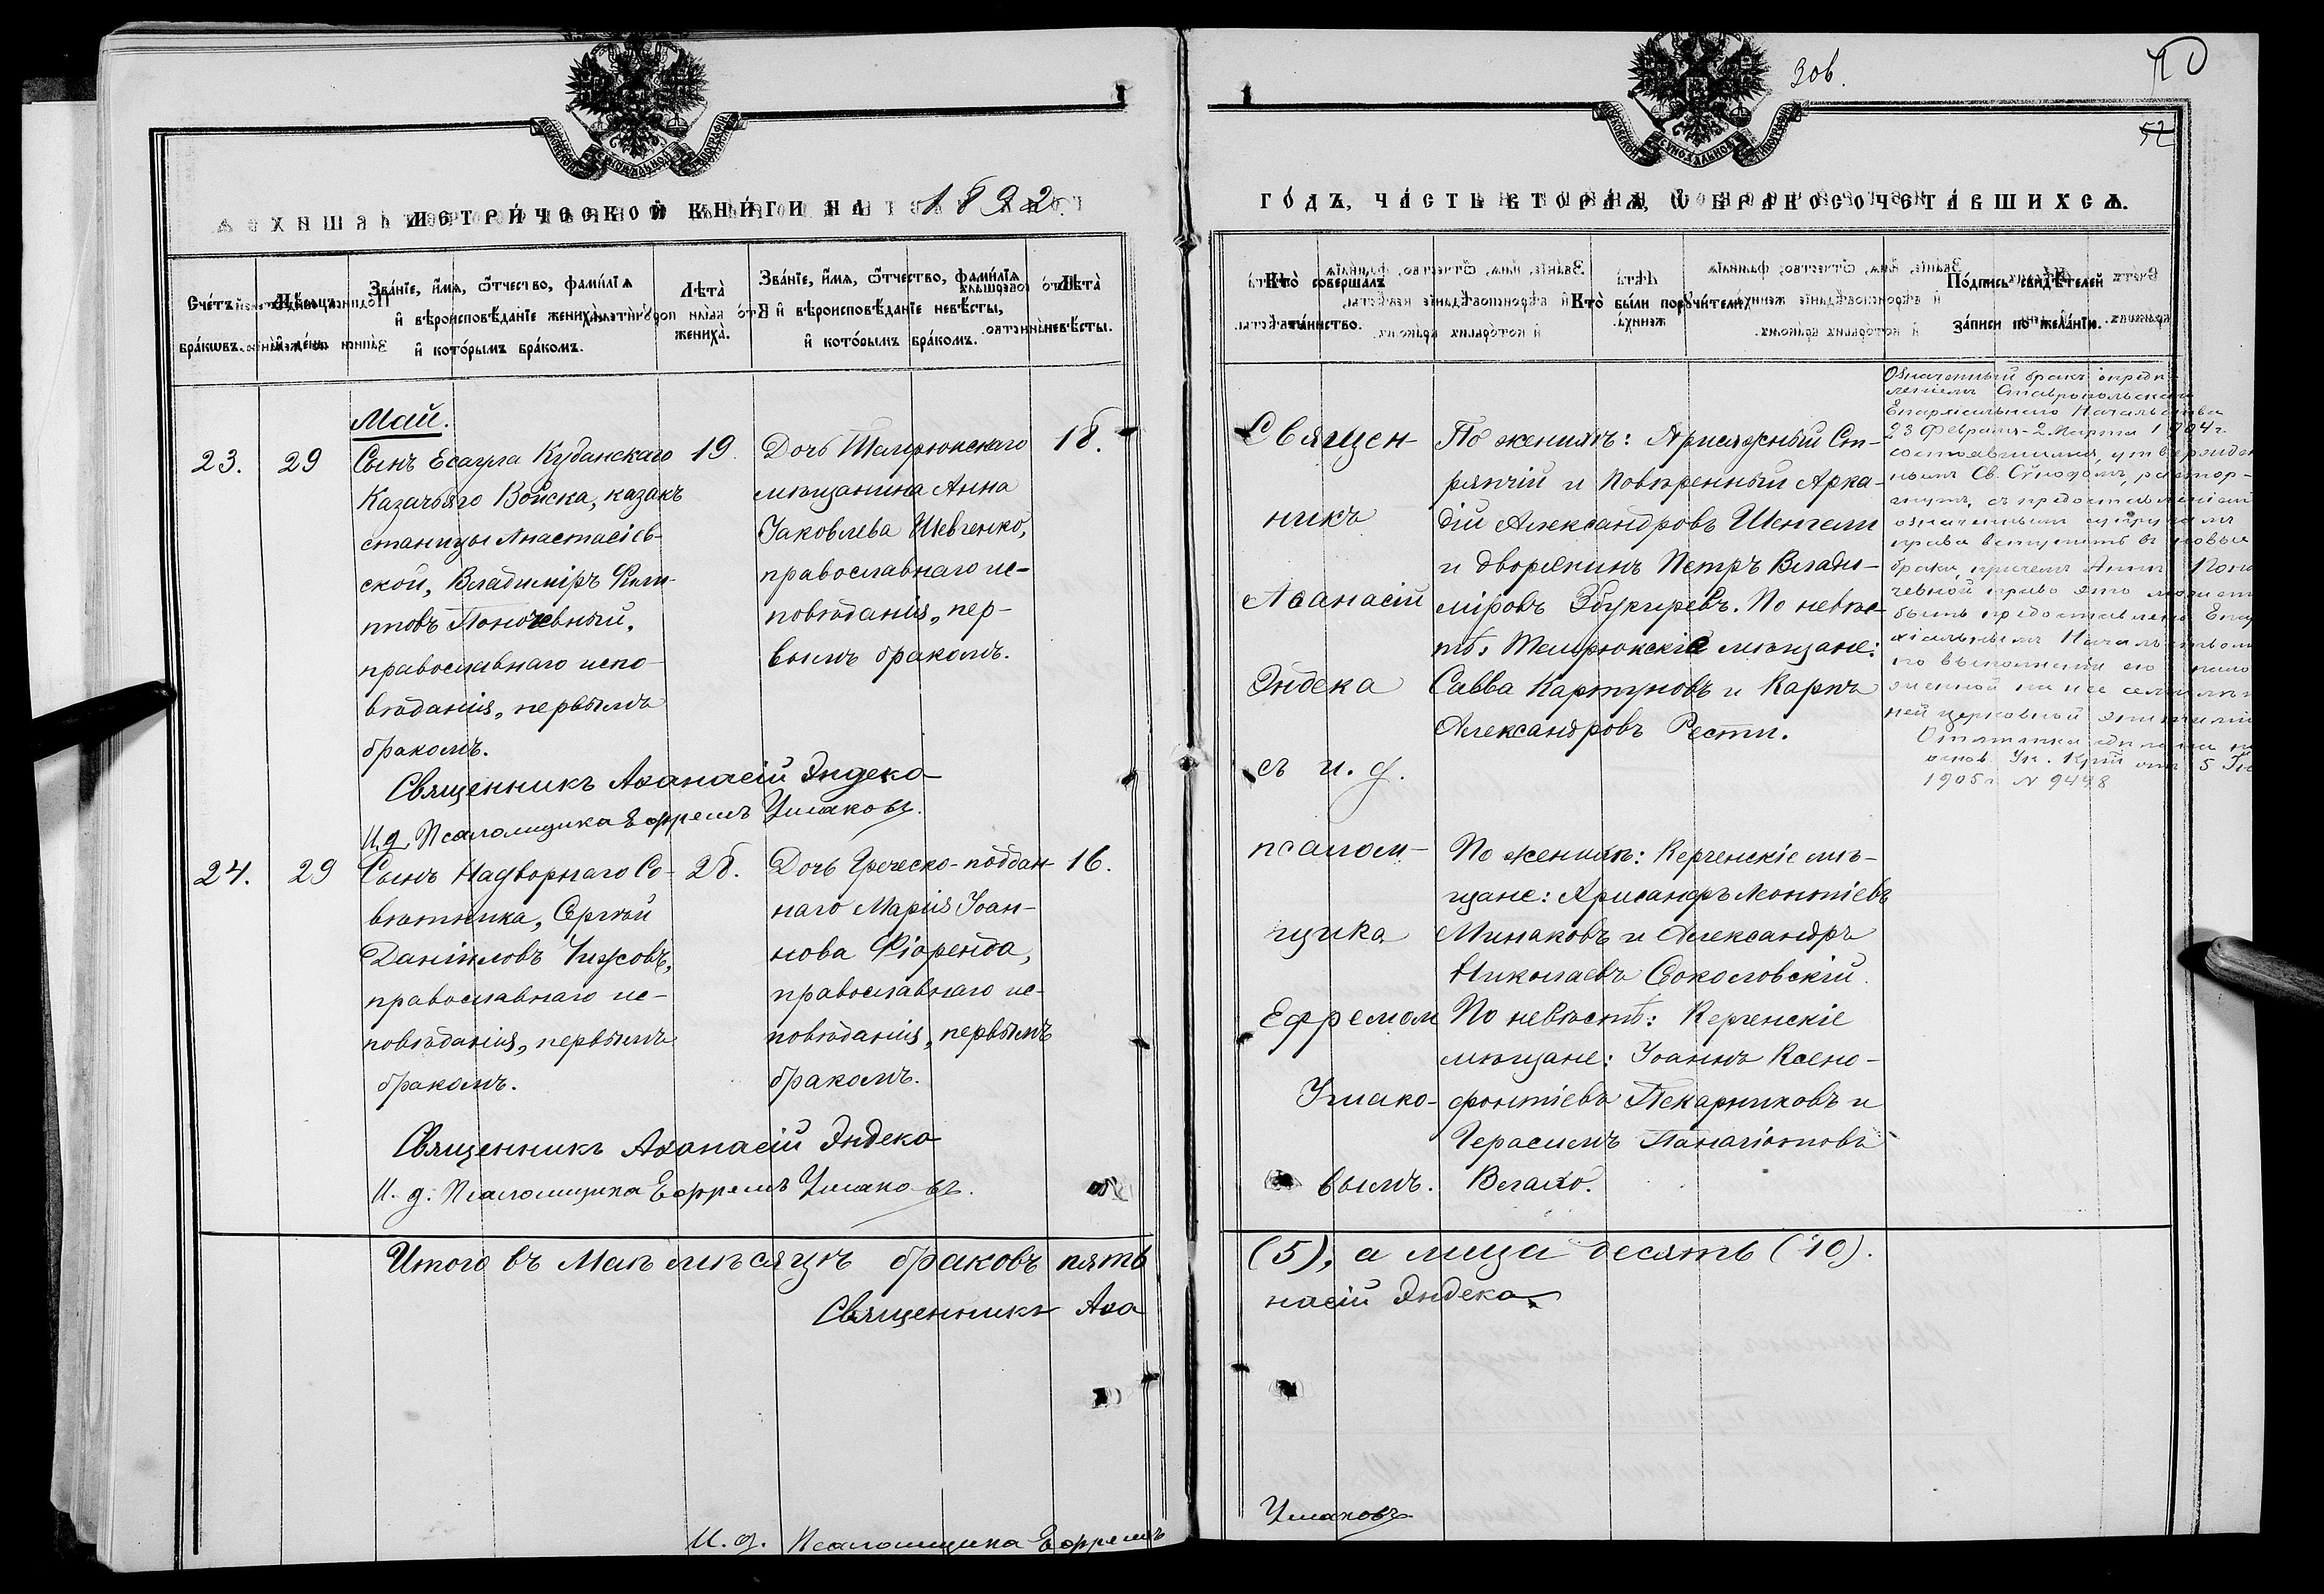 306.
52
МЕТРИ́ЧЕСКОЙ КНИ́ГИ НА 1892
ГО́ДЪ, ЧА́СТЬ ВТОРА́Я, Ѡ БРАКОСОЧЕТА́ВШИХСЯ.
Сче́тъ бра́кωвъ.
Мѣ́сяцъ и де́нь.
Зва́нїе, и́мя, ѻ́тчество, фами́лїя и вѣроисповѣ́данїе жениха̀, и кото́рымъ бра́комъ.
Лѣта̀ жениха̀.
Зва́нїе, и́мя, ѻ́тчество, фами́лїя и вѣроисповѣ́данїе невѣ́сты, и кото́рымъ бра́комъ.
Лѣта̀ невѣ́сты.
Кто̀ соверша́лъ та́инство.
Кто̀ бы́ли поручи́тели.
По́дпись свидѣ́телей за́писи по жела́нїю.
Май.
23.
29
Сынъ Есаула Кубанскаго
Казачьяго Войска, казакъ
станицы Анастасіев-
ской, Владиміръ Филип-
повъ Поночевный,
православнаго испо-
вѣданія, первымъ
бракомъ.
19.
Дочь Темрюкскаго
мѣщанина Анна
Іаковлева Шевченко,
православнаго ис-
повѣданія, пер-
вымъ бракомъ.
18.
Священникъ Аѳанасій Эндека
И. д. Псаломщика Ефремъ Ушаковъ.
24.
29
Сынъ Надворнаго Со-
вѣтника, Сергѣй
Даніиловъ Чижовъ,
православнаго ис-
повѣданія, первымъ
бракомъ.
28.
Дочь Греческо-поддан-
наго Марія Іоан-
нова Фіоренда,
православнаго ис-
повѣданія, первымъ
бракомъ.
16.
Священникъ Аѳанасій Эндека
И. д. Псаломщика Ефремъ Ушаковъ.
Итого въ Маѣ мѣсяцѣ браковъ пять
Священникъ Аѳа
И. д. Псаломщика Ефремъ
Священ-
никъ
Аѳанасій
Эндека
съ и. д.
псалом-
щика
Ефремом
Ушако-
вымъ.
По женихѣ: Присяжный Ст-
ряпчій и Повѣренный Арка-
дій Александровъ Шенгели
и дворянинъ Петръ Влади-
міровъ Збукиревъ. По невѣс-
тѣ, Темрюкскіе мѣщане:
Савва Картуновъ и Карпъ
Александровъ Рести.
Означенный бракъ опредѣ-
леніемъ Ставропольскаго
Епархіальнаго Начальства
23 Февраля-2 Марта 1904 г.
состоявшимся, утвержден
нымъ Св. Сѵнодомъ, растор-
гнутъ, съ предоставленіемъ
означеннымъ супругамъ
права вступить въ новые
браки, причемъ Аннѣ Поно
чевной право это можетъ
быть предоставлено Епар
хіальнымъ Начальствомъ
по выполненіи ею нало
женной на нее семилѣт
ней церковной эпитиміи
Отмѣтка сдѣлана на
основ. Ук. Кріи отъ 5
1905 г. № 9448
По женихѣ: Керченскіе мѣ-
щане: Александръ Леонтіевъ
Минаковъ и Александръ
Николаевъ Соколовскій.
По невѣстѣ: Керченскіе
мѣщане: Іоаннъ Ксено-
фонтіевъ Пекарниковъ и
Герасимъ Панагіотовъ
Влахо.
(5), а лица десять (10).
насій Эндека
Ушаковъ